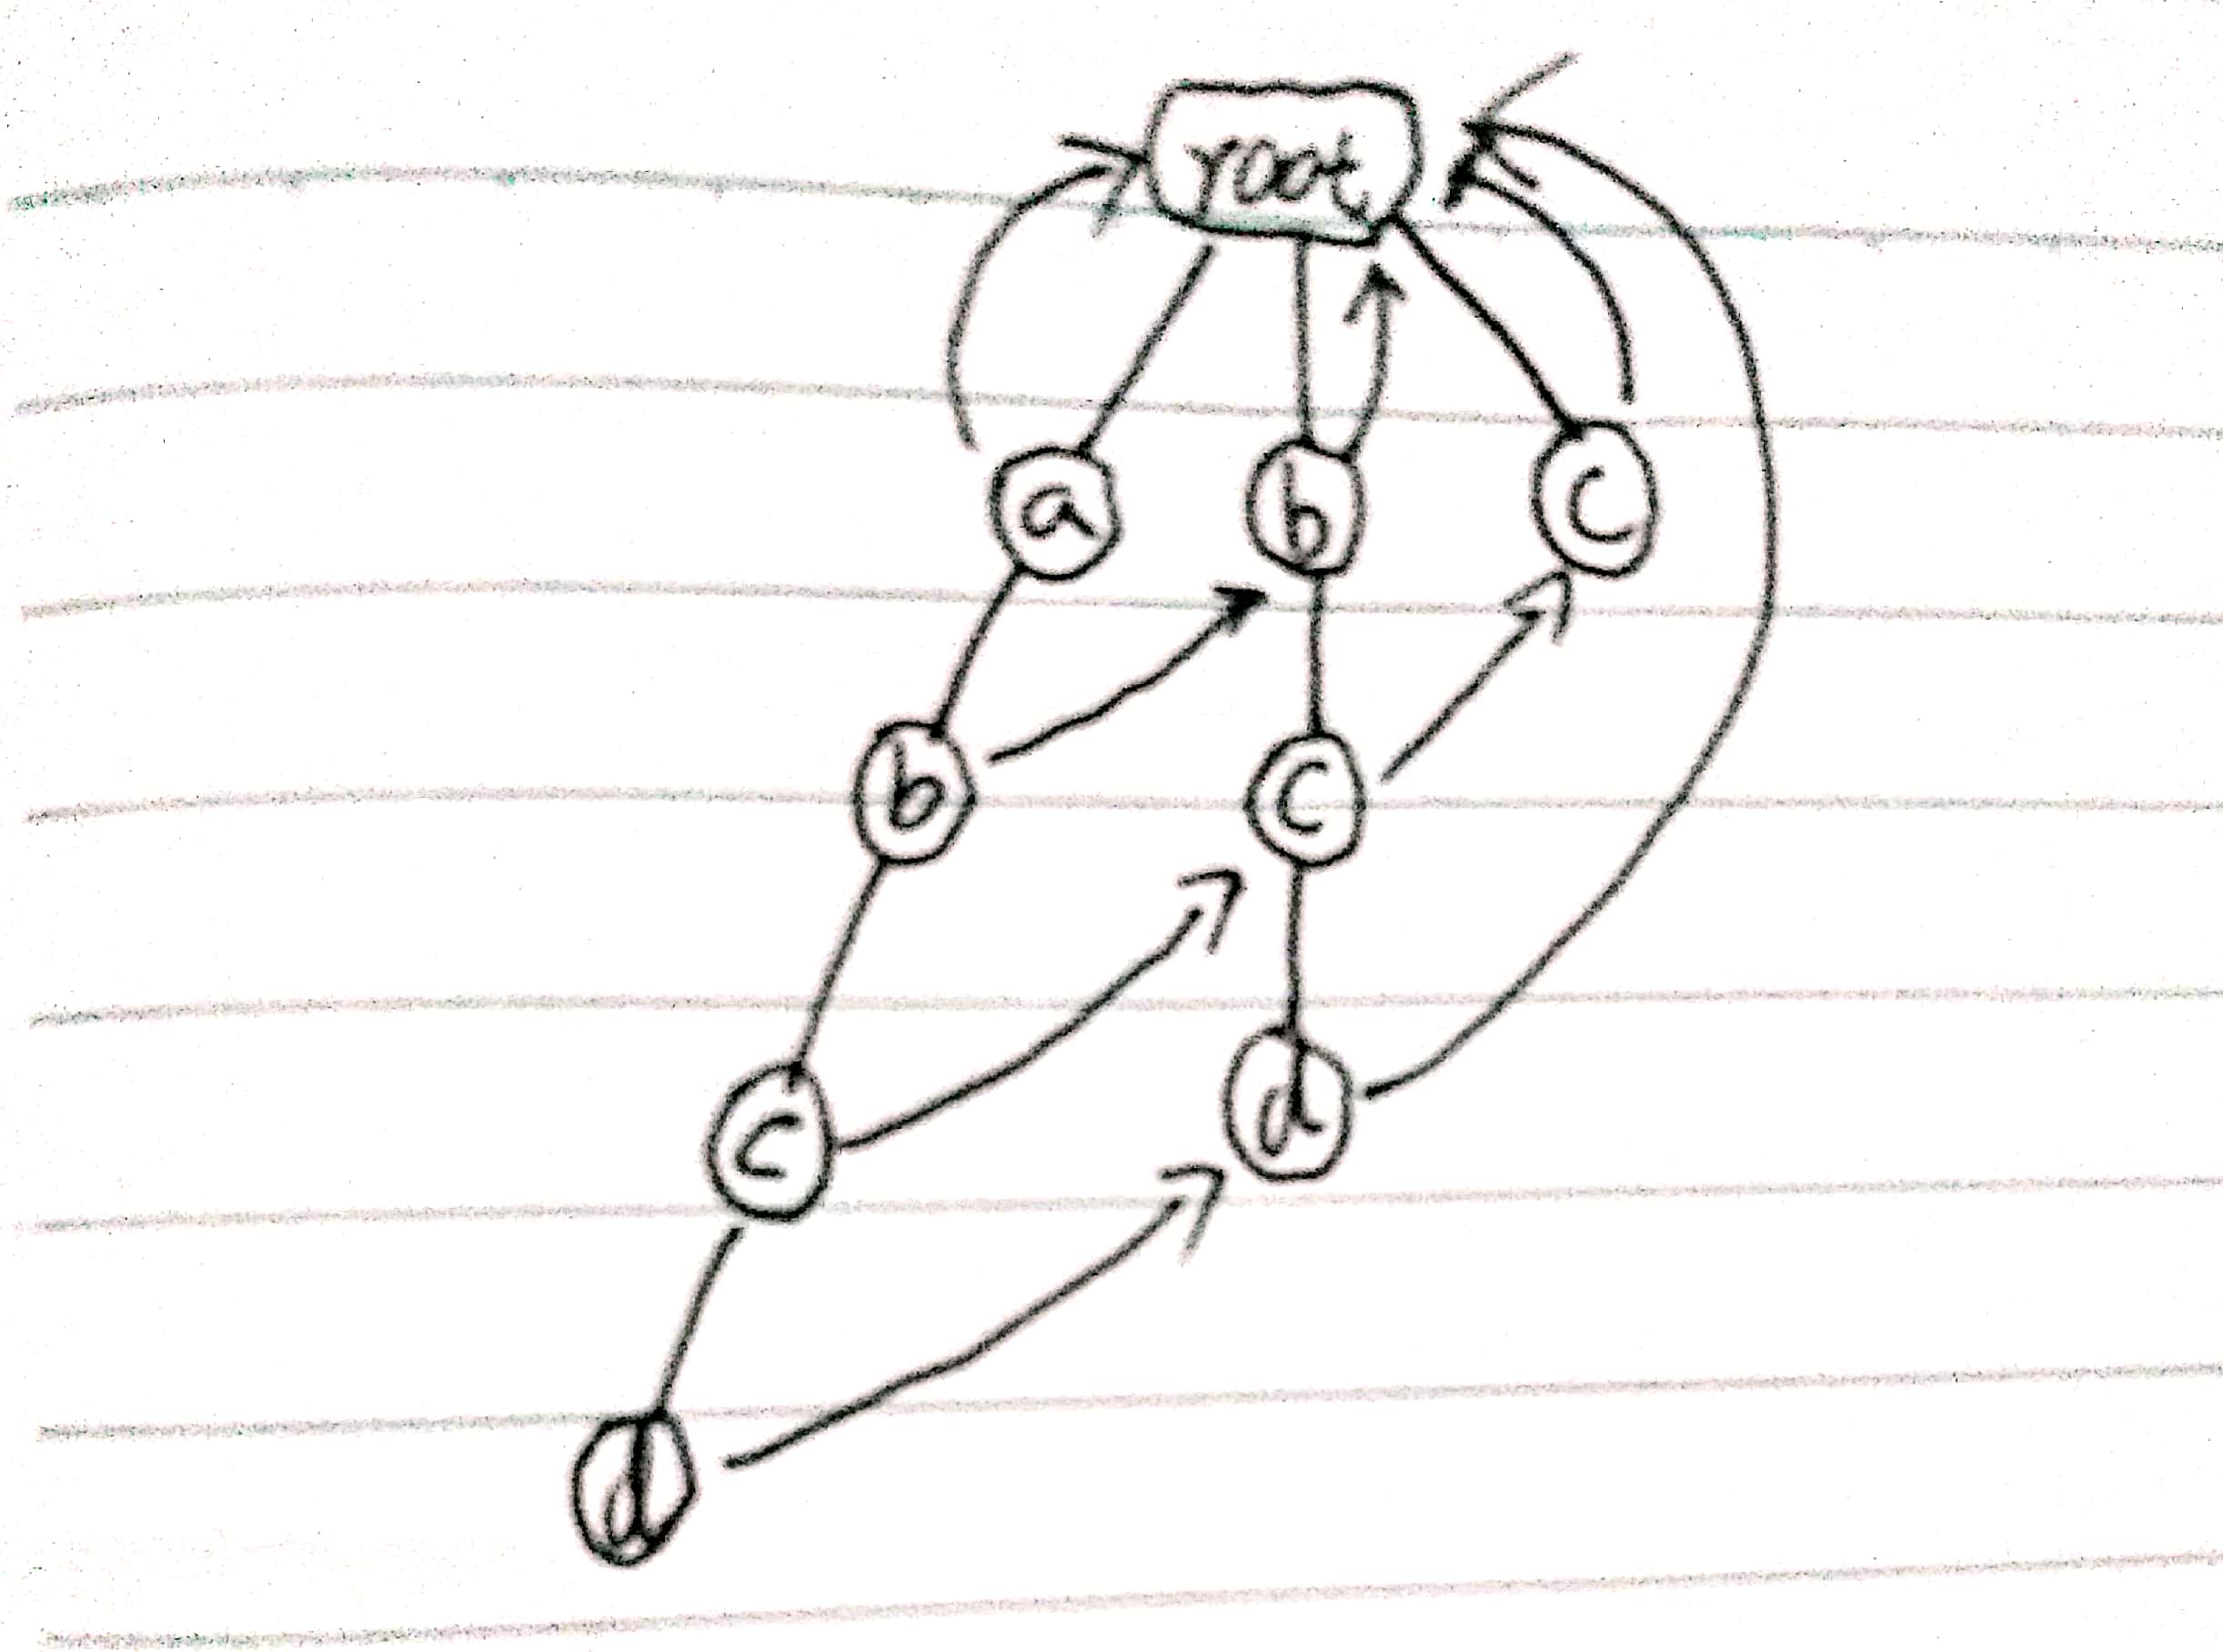 root
a b c
b c
c d
d